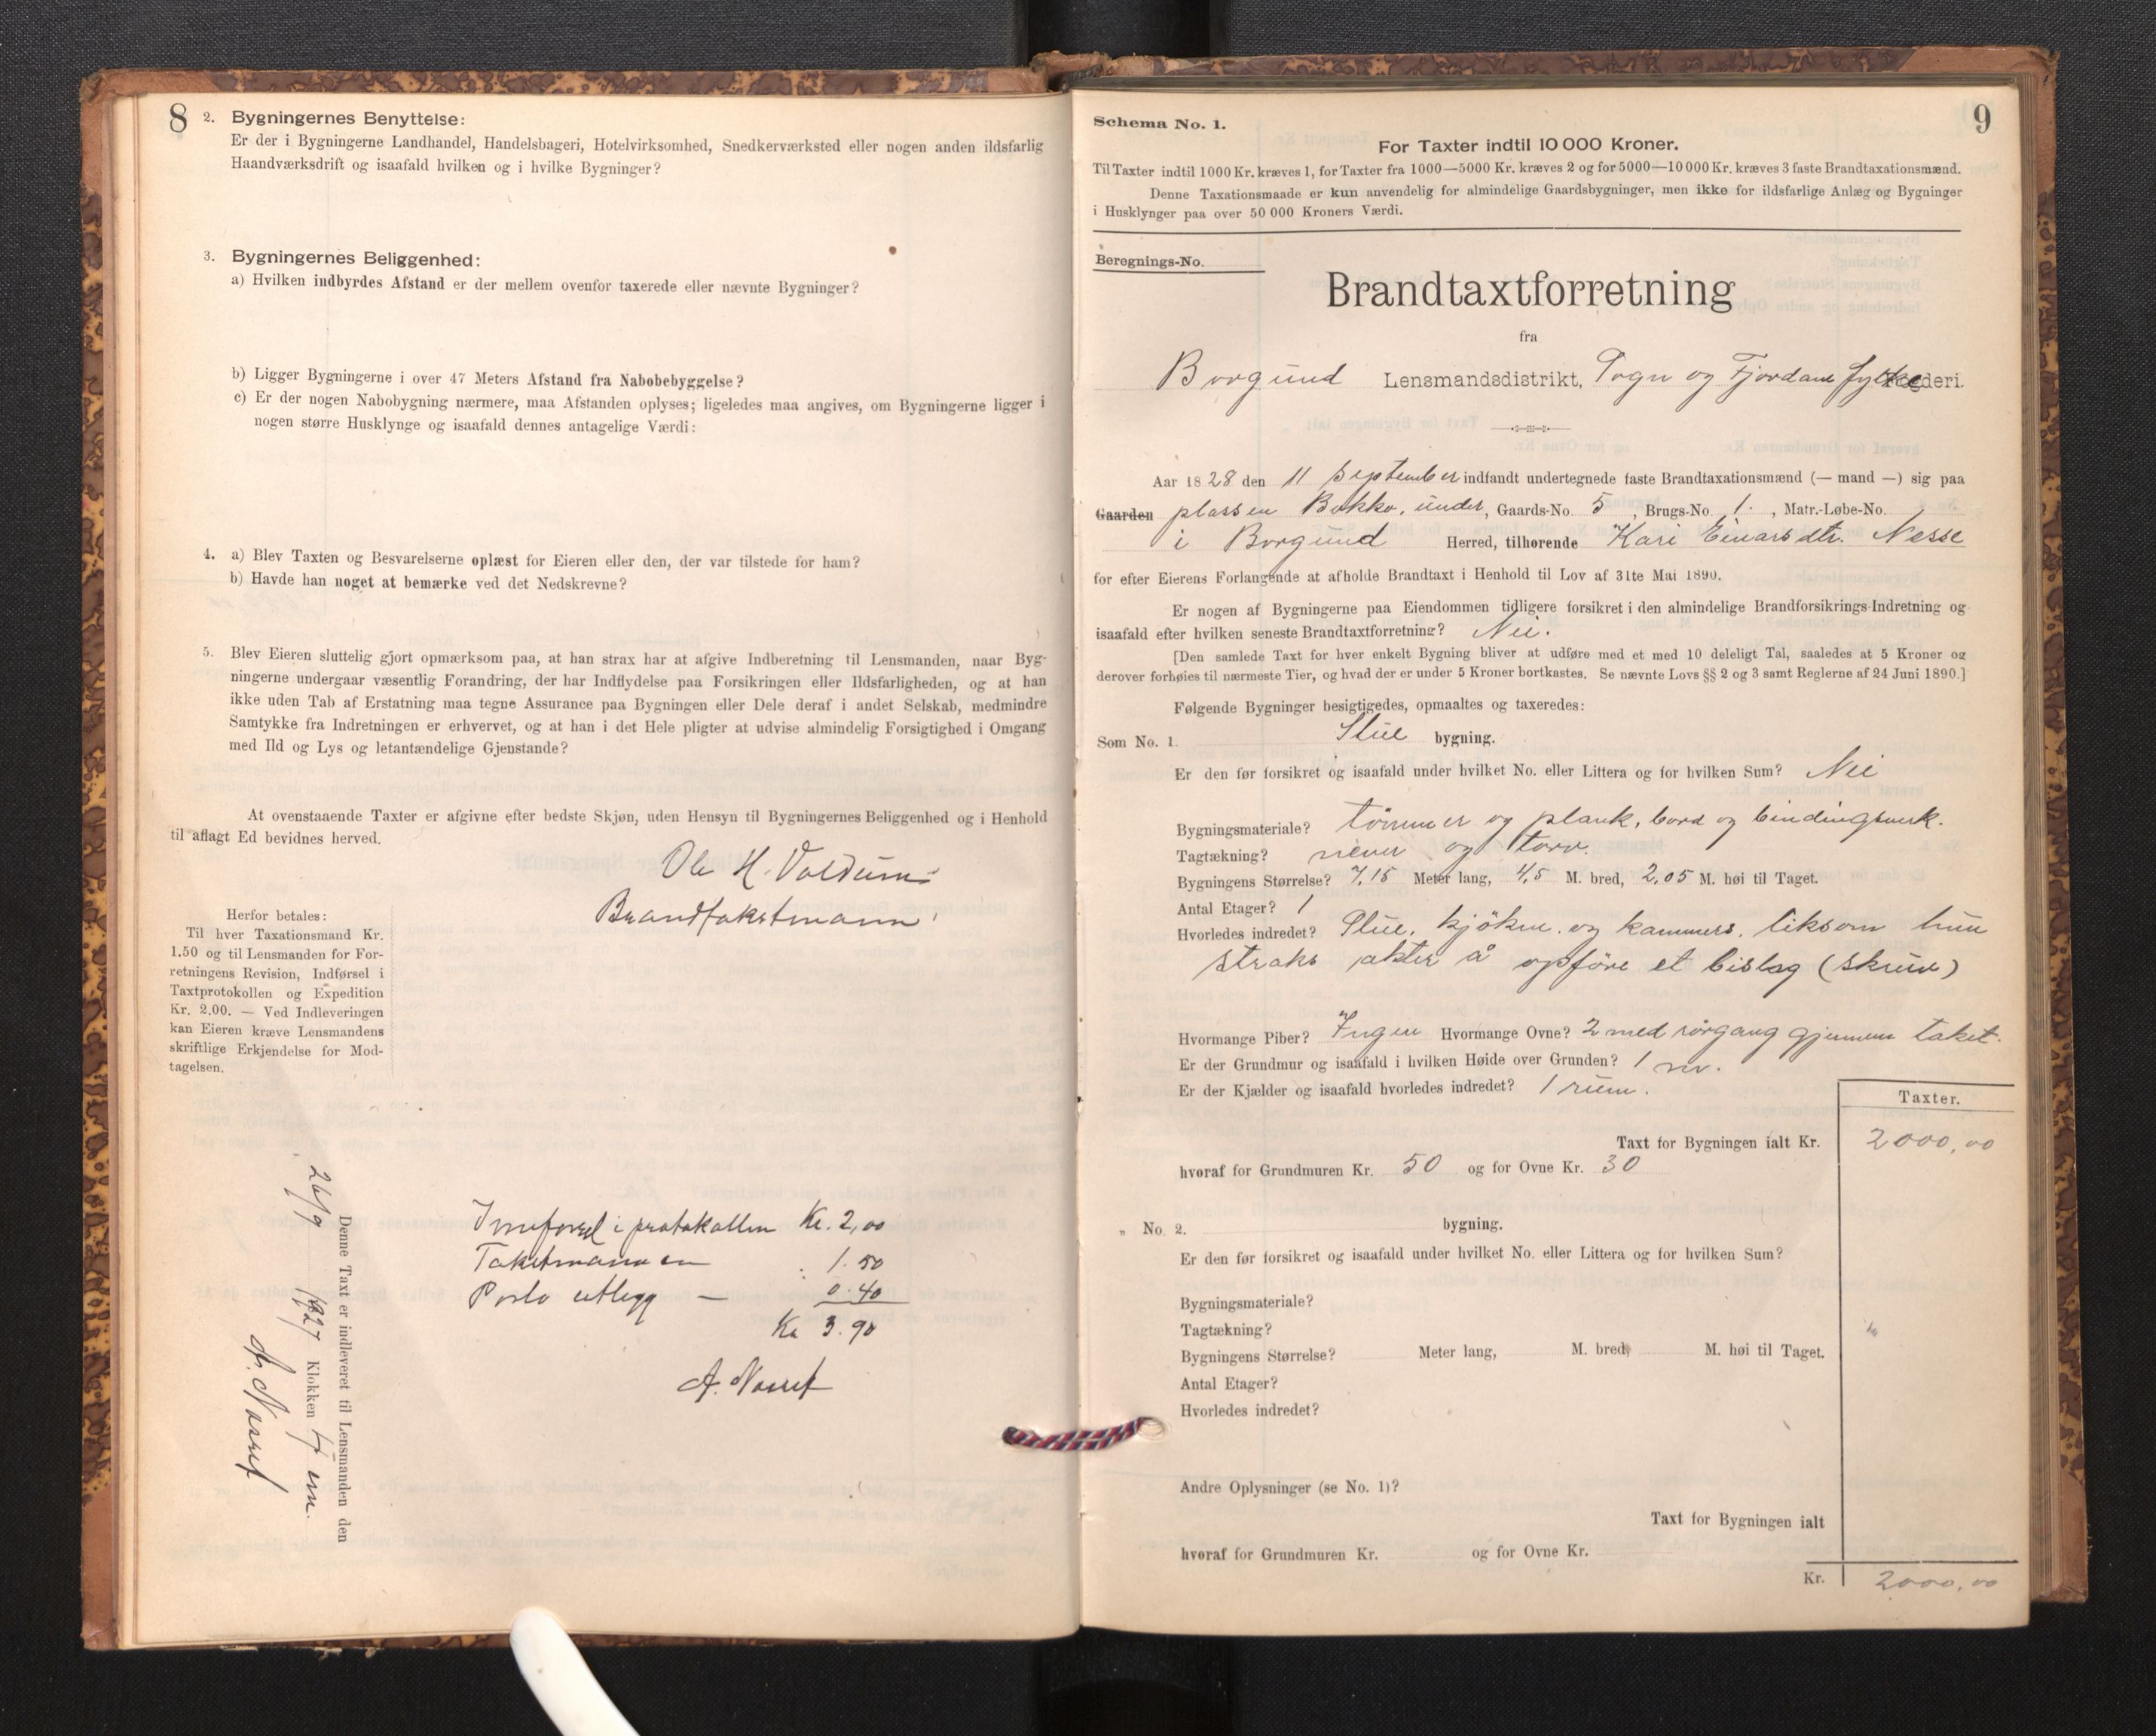 8
2. Bygningernes Benyttelse:
Er der i Bygningerne Landhandel, Handelsbageri, Hotelvirksomhed, Snedkerværksted eller nogen anden ildsfarlig
Haandværksdrift og isaafald hvilken og i hvilke Bygninger?
3. Bygningernes Beliggenhed:
a) Hvilken indbyrdes Afstand er der mellem ovenfor taxerede eller nævnte Bygninger?
b) Ligger Bygningerne i over 47 Meters Afstand fra Nabobebyggelse?
c) Er der nogen Nabobygning nærmere, maa Afstanden oplyses; ligeledes maa angives, om Bygningerne ligger i
nogen større Husklynge og isaafald dennes antagelige Værdi:
4. a) Blev Taxten og Besvarelserne oplæst for Eieren eller den, der var tilstede for ham?
b) Havde han noget at bemærke ved det Nedskrevne?
5. Blev Eieren sluttelig gjort opmærksom paa, at han strax har at afgive Indberetning til Lensmanden, naar Byg-
ningerne undergaar væsentlig Forandring, der har Indflydelse paa Forsikringen eller Ildsfarligheden, og at han
ikke uden Tab af Erstatning maa tegne Assurance paa Bygningen eller Dele deraf i andet Selskab, medmindre
Samtykke fra Indretningen er erhvervet, og at han i det Hele pligter at udvise almindelig Forsigtighed i Omgang
med Ild og Lys og letantændelige Gjenstande?
At ovenstaaende Taxter er afgivne efter bedste Skjøn, uden Hensyn til Bygningernes Beliggenhed og i Henhold
til aflagt Ed bevidnes herved.
Ole H. Voldum
Brandtakstmann.
Herfor betales:
Til hver Taxationsmand Kr.
1.50 og til Lensmanden for For-
retningens Revision, Indførsel i
Taxtprotokollen og Expedition
Kr. 2.00. — Ved Indleveringen
kan Eieren kræve Lensmandens
skriftlige Erkjendelse for Mod-
tagelsen.
Denne Taxt er indleveret til Lensmanden den
26/9 1927 Klokken 4 em.
Innførsel i protokollen Kr. 2,00
Takstmannen 1.50
Porto utlegg — 0.40
Kr 3.90
9
Schema No. 1.
For Taxter indtil 10 000 Kroner.
Til Taxter indtil 1000 Kr. kræves 1, for Taxter fra 1000—5000 Kr. kræves 2 og for 5000—10 000 Kr. kræves 3 faste Brandtaxationsmænd.
Denne Taxationsmaade er kun anvendelig for almindelige Gaardsbygninger, men ikke for ildsfarlige Anlæg og Bygninger
i Husklynger paa over 50 000 Kroners Værdi.
Beregnings-No.
Brandtaxtforretning
fra
Borgund Lensmandsdistrikt, Sogn og Fjordane fylke Fogderi.
Aar 1828 den 11 September indfandt undertegnede faste Brandtaxationsmænd (— mand —) sig paa
Gaarden plassen Bakko, under, Gaards-No. 5, Brugs-No. 1., Matr.-Løbe-No.
i Borgund Herred, tilhørende Kari Einarsdtr. Nesse
for efter Eierens Forlangende at afholde Brandtaxt i Henhold til Lov af 31te Mai 1890.
Er nogen af Bygningerne paa Eiendommen tidligere forsikret i den almindelige Brandforsikrings-Indretning og
isaafald efter hvilken seneste Brandtaxtforretning? Nei.
[Den samlede Taxt for hver enkelt Bygning bliver at udføre med et med 10 deleligt Tal, saaledes at 5 Kroner og
derover forhøies til nærmeste Tier, og hvad der er under 5 Kroner bortkastes. Se nævnte Lovs §§ 2 og 3 samt Reglerne af 24 Juni 1890.]
Følgende Bygninger besigtigedes, opmaaltes og taxeredes:
Som No. 1. Stue bygning.
Er den før forsikret og isaafald under hvilket No. eller Littera og for hvilken Sum? Nei
Bygningsmateriale? tömmer og plank, bord og bindingsverk.
Tagtækning? never og torv.
Bygningens Størrelse? 7,15 Meter lang, 4,5 M. bred, 2,05 M. høi til Taget.
Antal Etager? 1
Hvorledes indredet? Stue, kjökn. og kammers, liksom hun
straks akter å opföre et bislag (skruv)
Hvormange Piber? Ingen Hvormange Ovne? 2 med rörgang gjennem taket.
Er der Grundmur og isaafald i hvilken Høide over Grunden? 1 m.
Er der Kjælder og isaafald hvorledes indredet? 1 rum.
Taxter.
Taxt for Bygningen ialt Kr. 2000,00
hvoraf for Grundmuren Kr. 50 og for Ovne Kr. 30
„ No. 2. bygning.
Er den før forsikret og isaafald under hvilket No. eller Littera og for hvilken Sum?
Bygningsmateriale?
Tagtækning?
Bygningens Størrelse? Meter lang, M. bred, M. høi til Taget.
Antal Etager?
Hvorledes indredet?
Andre Oplysninger (se No. 1)?
Taxt for Bygningen ialt
hvoraf for Grundmuren Kr. og for Ovne Kr.
Kr. 2000,00